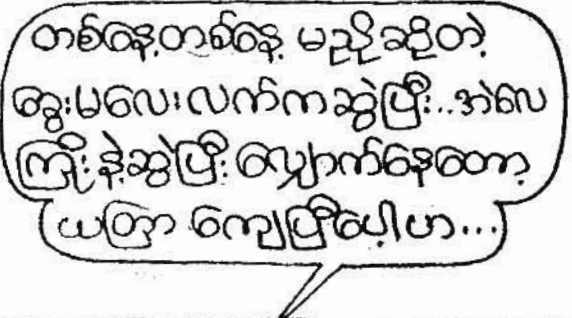 တစ်နေ့တစ်နေ့ မညိုဆိုတဲ့
ခွေးမလေးလက်ကဆွဲပြီး..အဲလေ
ကြိုးနဲ့ဆွဲပြီး လျှောက်နေတော့
ယတြာ ကျေပြီပေါ့ဟ...